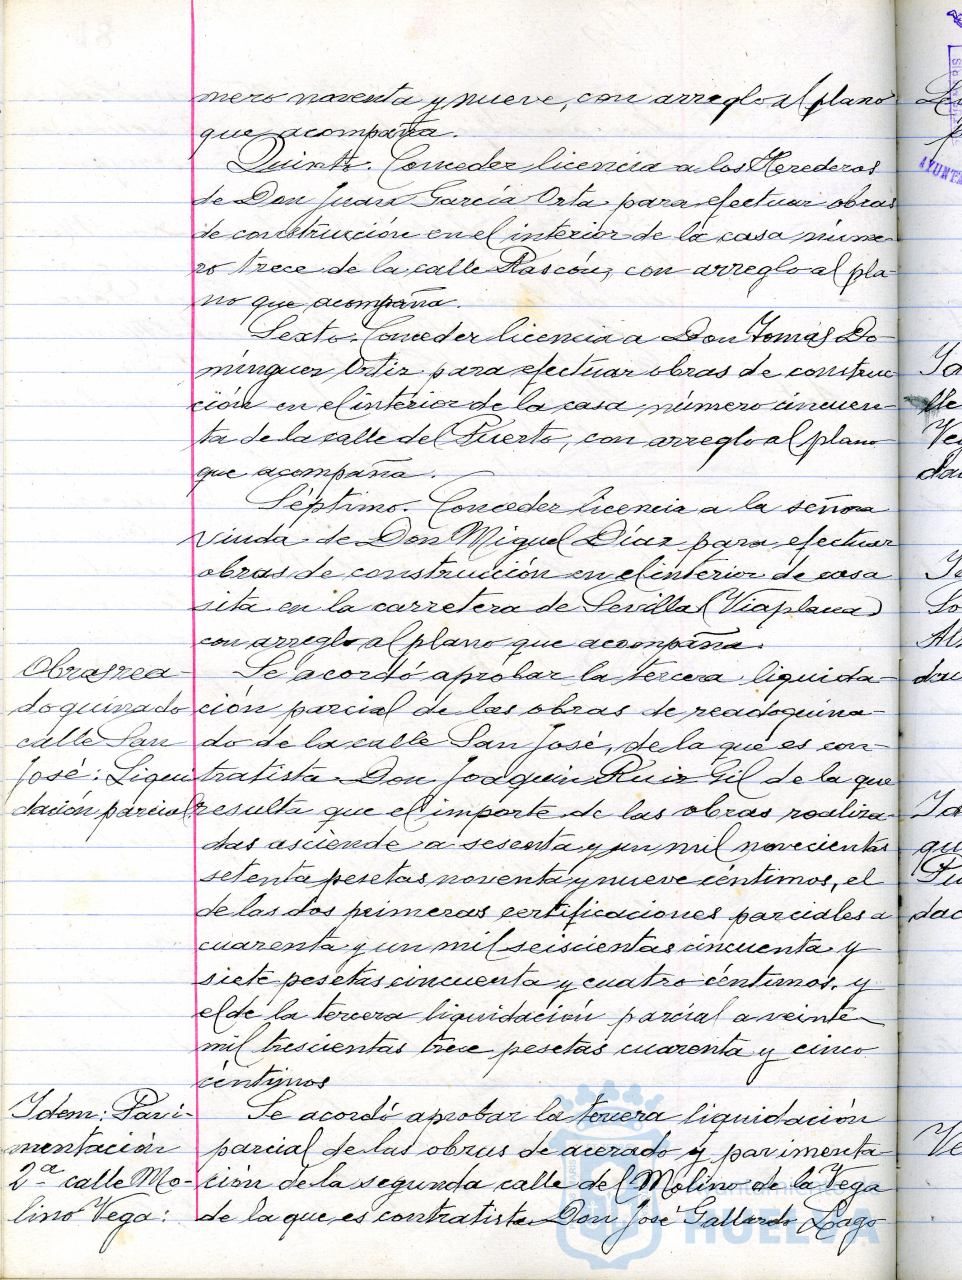 mero noventa y nueve, con arreglo al plano
que acompaña.
Quinto. Conceder licencia a los Herederos
de Don Juan García Orta para efectuar obras
de construcción en el interior de la casa núme-
ro trece de la calle Rascón, con arreglo al pla-
no que acompaña.
Sexto. Conceder licencia a Don Tomás Do-
mínguez Ortiz para efectuar obras de construc
ción en el interior de la casa número cincuen-
ta de la calle del Puerto, con arreglo al plano
que acompaña.
Séptimo. Conceder licencia a la señora
viuda de Don Miguel Díaz para efectuar
obras de construcción en el interior de casa
sita en la carretera de Sevilla (Viaplana)
con arreglo al plano que acompaña.
Obras rea-
doquinado
calle San
José: Liqui
dación parcial:
Se acordó aprobar la tercera liquida-
ción parcial de las obras de readoquina-
do de la calle San José, de la que es con-
tratista Don Joaquín Ruiz Gil de la que
resulta que el importe de las obras realiza-
das asciende a sesenta y un mil novecientas
setenta pesetas noventa y nueve céntimos, el
de las dos primeras certificaciones parciales a
cuarenta y un mil seiscientas cincuenta y
siete pesetas cincuenta y cuatro céntimos, y
el de la tercera liquidación parcial a veinte
mil trescientas trece pesetas cuarenta y cinco
céntimos
Idem: Pavi-
mentación
2ª calle Mo-
lino Vega:
Se acordó aprobar la tercera liquidación
parcial de las obras de acerado y pavimenta-
ción de la segunda calle del Molino de la Vega
de la que es contratista Don José Gallardo Lago
Ayuntamiento
HUELVA